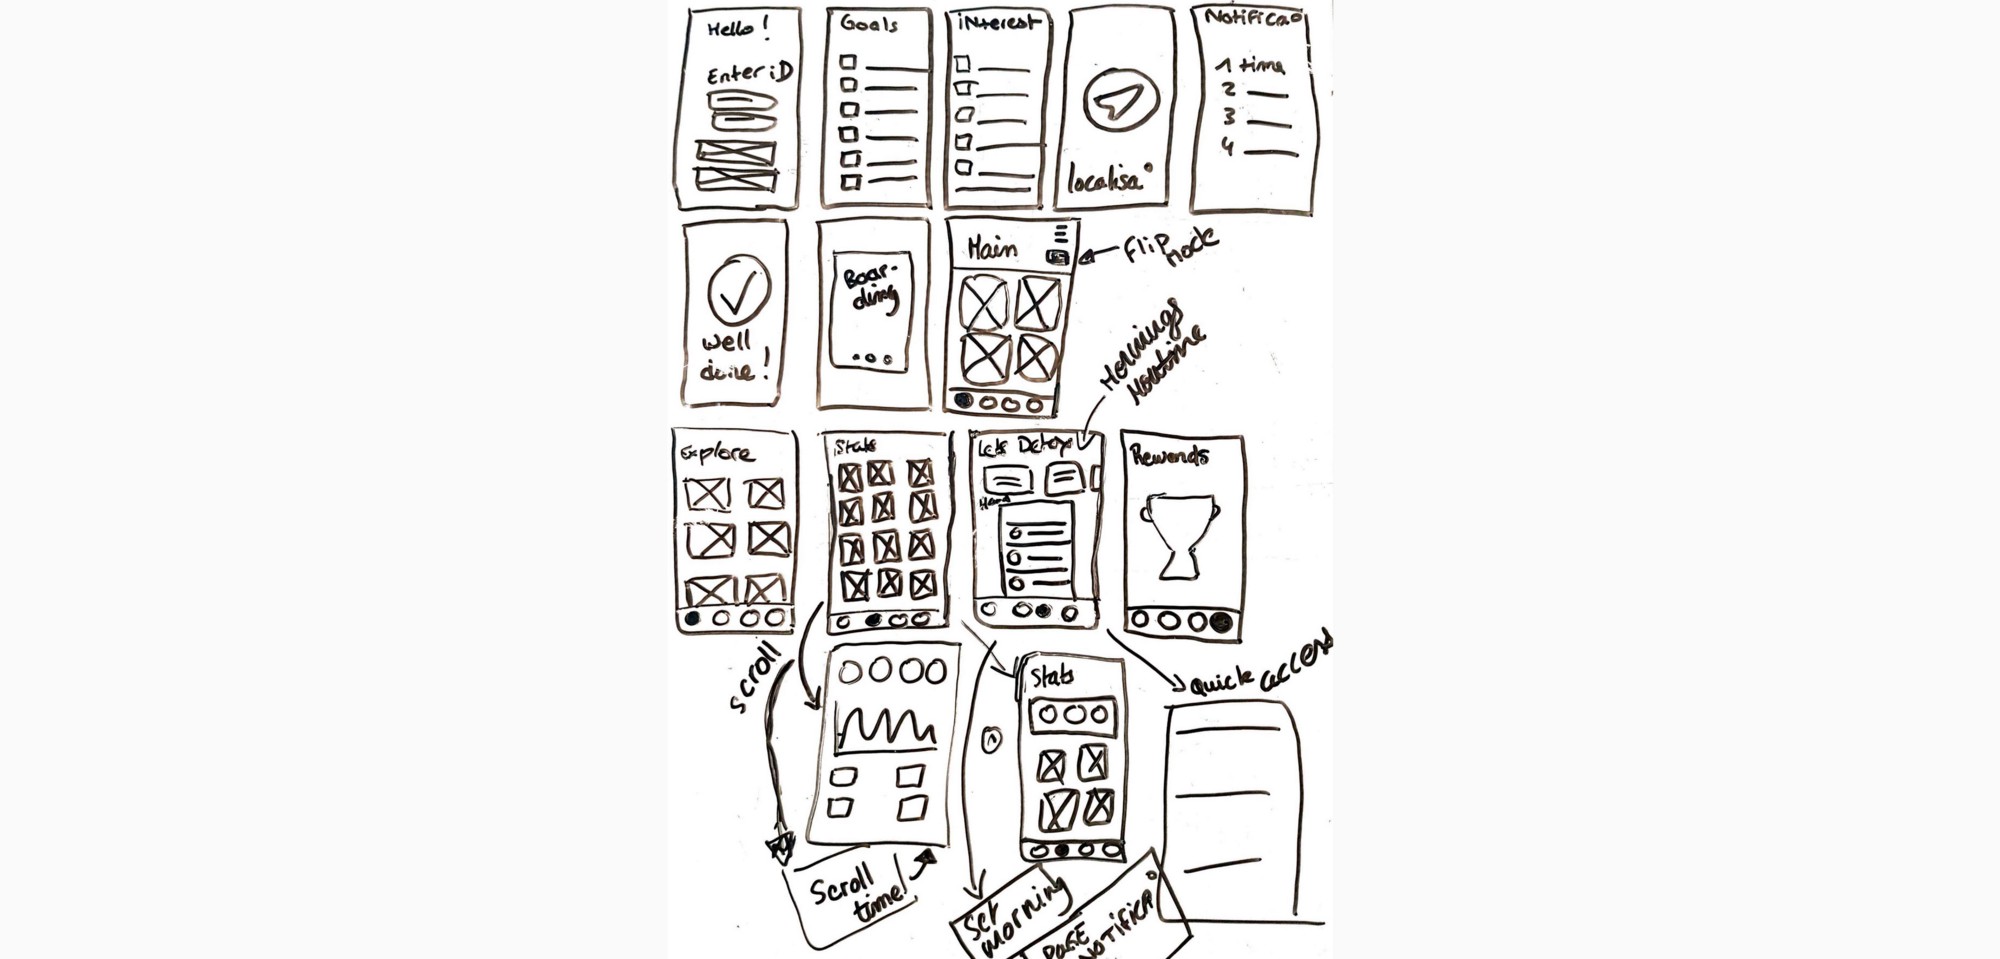 Hello!
Enter iD
Goals
iNterest
localisa°
Notificao
1 time
2
3
4
Well
done!
Boar-
ding
Main
Flip
Mode
Mornings
Routine
Explore
Stats
Lets Detox
Rewards
scroll
Stats
Quick access
Scroll
time!
Set
Morning
PAGE
NOTiFiCA°